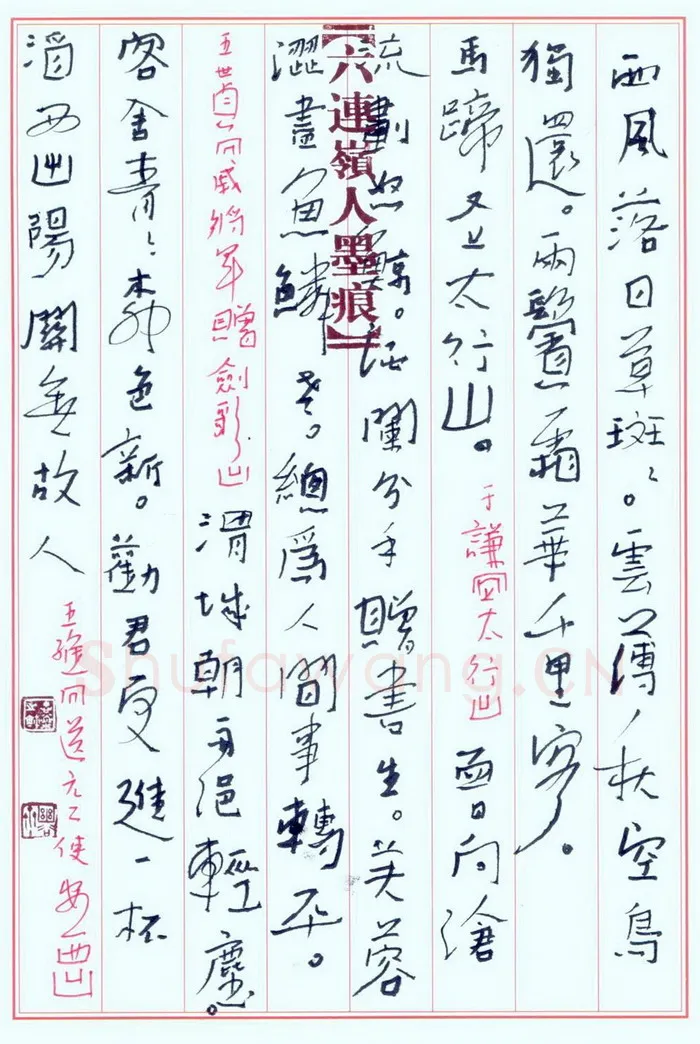 西風落日草斑斑。雲薄秋空鳥
獨還。兩鬢霜華千里客。
馬蹄又上太行山。于謙「上太行」曾向滄
流剸怒鯨。酒闌分手贈書生。芙蓉
澀盡魚鱗老。總為人間事轉平。
王世貞「戚將軍贈劍歌」渭城朝雨浥輕塵。
客舍青青柳色新。勸君更進一杯
酒西出陽關無故人
王維「送元二使安西」
【六連嶺人墨痕】
Shufawang.CN